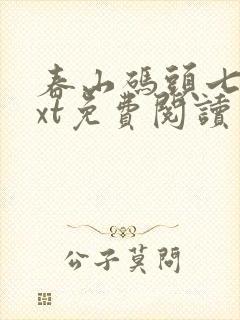 春山碼頭七
xt免費閱讀
公子莫問